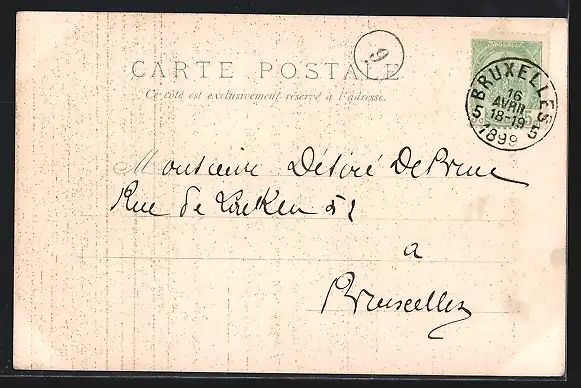 9
CARTE POSTALE
Ce côté est exclusivement réservé à l'adresse.
BRUXELLES
16
AVRIL
18-19
1899
5 5
Monsieur Désiré De Prins
Rue de Laeken 51
a
Bruxelles